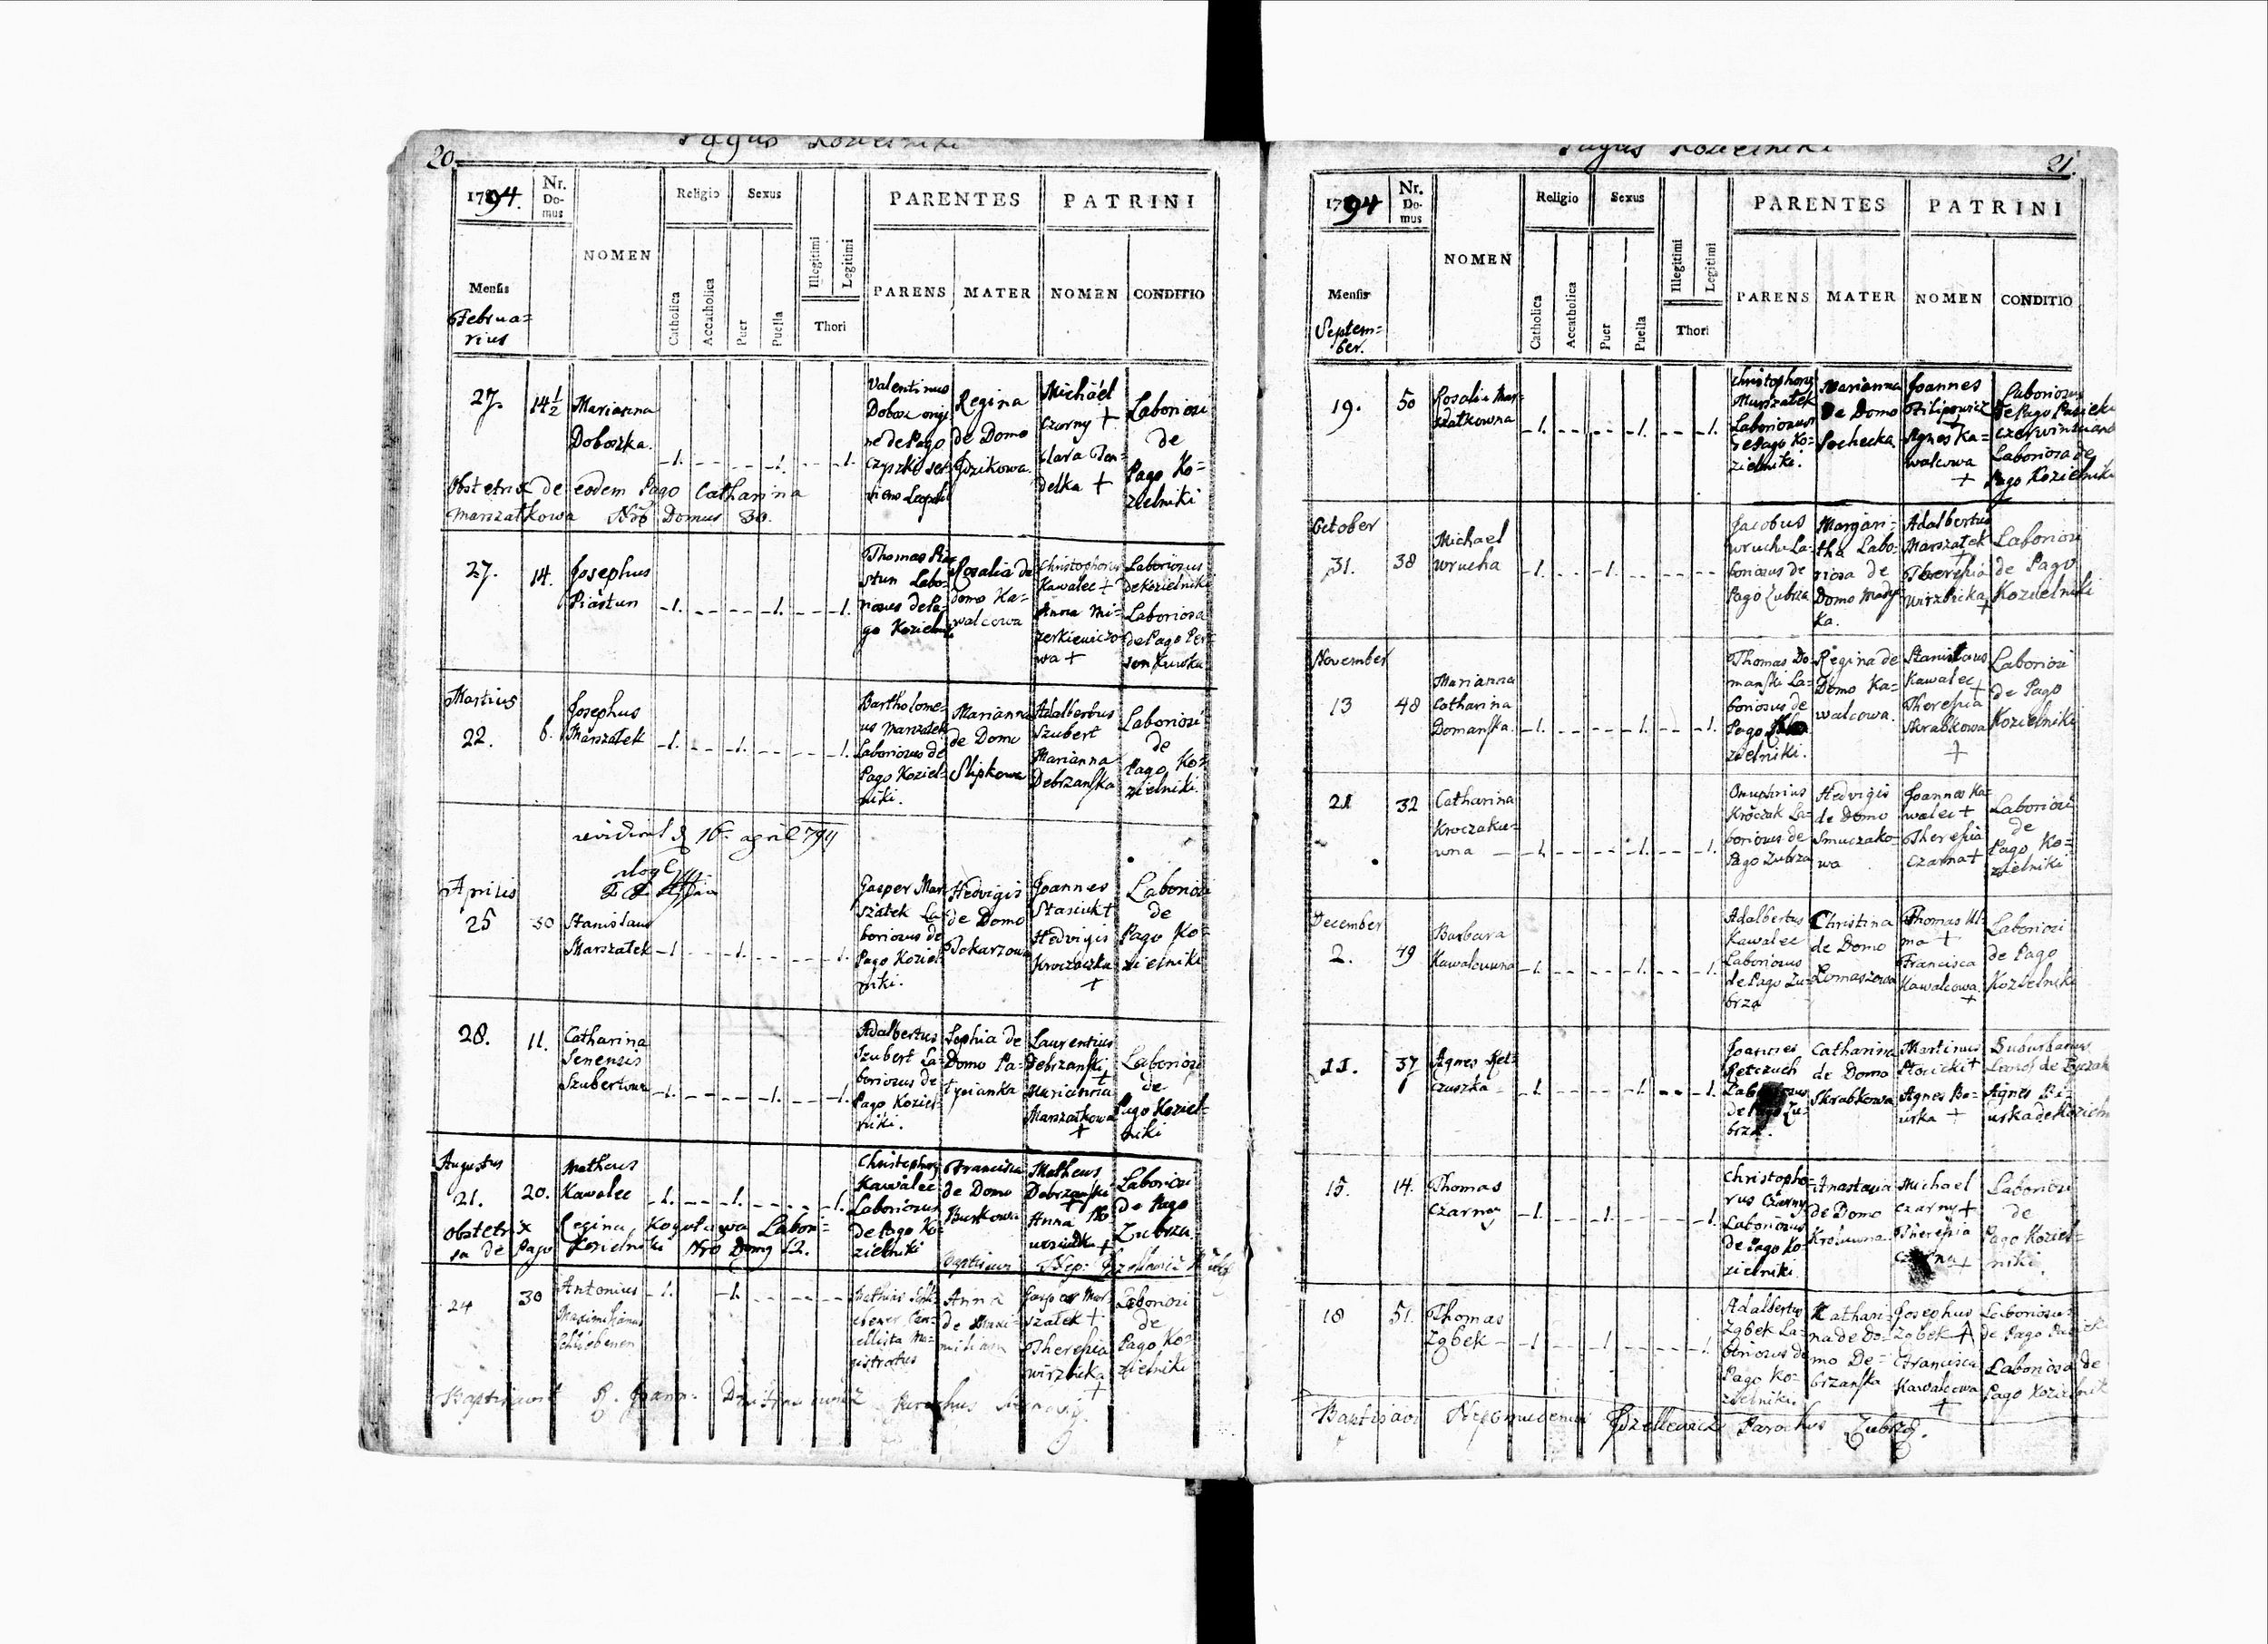 20.
Pagus Kozielniki
1794.
Nr. Do-mus
NOMEN
Religio
Sexus
PARENTES
PATRINI
Mensis
Catholica
Accatholica
Puer
Puella
Illegitimi
Legitimi
Thori
PARENS
MATER
NOMEN
CONDITIO
Februa=
rius
27.
14 1/2
Marianna
Doboszka.
Valentinus
Dobosz
ne de Pago
Czyszki
Regina
de Domo
Michäel
Czarny +
Clara
delka +
Laboriosi
de
Pago Ko=
zielniki
Obstetrix de eodem Pago Catharina
Marszałkowa Nro Domus 30.
27.
14.
Josephus
Piastun
Thomas Pia
stun Labo-
riosus de Pa-
go Kozielniki
Rosalia de
Domo Ka-
walcowa
Christophorus
Kawalec +
Anna Mi-
zerkiewiczo
wa +
Laboriosus
de Kozielniki
Laboriosa
de Pago Per-
senkuwka
Martius
22.
6.
Josephus
Marszałek
Bartholome-
us Marszałek
Laboriosus de
Pago Koziel-
niki.
Marianna
de Domo
Slipkowa
Adalbertus
Szubert
Marianna
Debrzanska
Laboriosi
de
Pago Ko=
zielniki.
revidiret d 16 april 794
Aprilis
25
30
Stanislaus
Marszałek
Gasper Mar
szałek La-
boriosus de
Pago Koziel
niki.
Hedvigis
de Domo
Tokarzowa
Joannes
Stasiuk +
Hedvigis
Kroczaczka
+
Laboriosi
de
Pago Ko=
zielniki
28.
11.
Catharina
Senensis
Szubertowna
Adalbertus
Szubert La-
boriosus de
Pago Koziel-
niki.
Sophia de
Domo Pa-
Laurentius
Debrzanski
+
Marszałkowa
+
Laboriosi
de
Pago Koziel-
niki
Augustus
21.
20.
Matheus
Kawalec
Christophorus
Kawalec
Laboriosus
de Pago Ko-
zielniki
Francisca
de Domo
Burkowa
Matheus
Debrzanski
Anna
Laboriosi
de Pago
Zubrza.
Obstetrix Regina Labori=
sa de Pago Kozielniki Nro Domus 12.
24
30
Antonius
Anna
de
Gasper Mar-
szałek +
Theresia
Wirzbicka
+
Laboriosi
de
Pago Ko=
zielniki
21.
Pagus Kozielniki
1794
Nr. Do-mus
NOMEN
Religio
Sexus
PARENTES
PATRINI
Mensis
Catholica
Accatholica
Puer
Puella
Illegitimi
Legitimi
Thori
PARENS
MATER
NOMEN
CONDITIO
Septem=
ber.
19.
50
Rosalia Mar-
szałkowna
Christophorus
Marszałek
Laboriosus
de Pago Ko-
zielniki.
Marianna
de Domo
Sochecka
Joannes
Filipowicz
+
Agnes Ka=
walcowa
+
Laboriosus
de Pago Pasieki
Laboriosa de
Pago Kozielniki
October
31.
38
Michael
Wrucha
Jacobus
Wrucha La-
boriosus de
Pago Zubrza
Margari-
tha Labo-
riosa de
Domo Mady
ka.
Adalbertus
Marszałek
+
Theresia
Wirzbicka +
Laboriosi
de Pago
Kozielniki
November
13
48
Marianna
Catharina
Domanska.
Thomas Do-
manski La-
boriosus de
Pago Ko
zielniki.
Regina de
Domo Ka=
walcowa.
Stanislaus
Kawalec +
Theresia
Skrabkowa
+
Laboriosi
de Pago
Kozielniki
21
32
Catharina
Kroczaku-
wna
Onuphrius
Kroczak La-
boriosus de
Pago Zubrza
Hedvigis
de Domo
Smuczako-
wa
Joannes Ka-
walec +
Theresia
Czarna +
Laboriosi
de
Pago Ko=
zielniki
December
2.
49
Barbara
Kawalcuwna
Adalbertus
Kawalec
Laboriosus
de Pago Zu-
brza
Christina
de Domo
Tomaszowa
Thomas Kl-
ma +
Francisca
Kawalcowa.
+
Laboriosi
de Pago
Kozielniki
11.
37
Agnes Pet-
czuszka
Joannes
Petczuch
Laboriosus
de Pago Zu-
brza.
Catharina
de Domo
Skrabkowa
Martinus
+
Agnes
+
Suburbanus
15.
14.
Thomas
Czarny
Christopho-
rus Czarny
Laboriosus
de Pago Ko-
zielniki
Anastasia
de Domo
Michael
Czarny +
Theresia
Czarna +
Laboriosi
de
Pago Koziel-
niki.
18
51.
Thomas
Zgbek
Adalbertus
Zgbek La-
boriosus de
Pago Ko-
zielniki.
Kathari-
na de Do-
mo De-
brzanska
Josephus
Zgbek +
Francisca
Kawalcowa
+
Laboriosus
de Pago Pasieki
Laboriosa de
Pago Kozielniki
Baptisavi Nepomucenus Parochus Zubrzą.